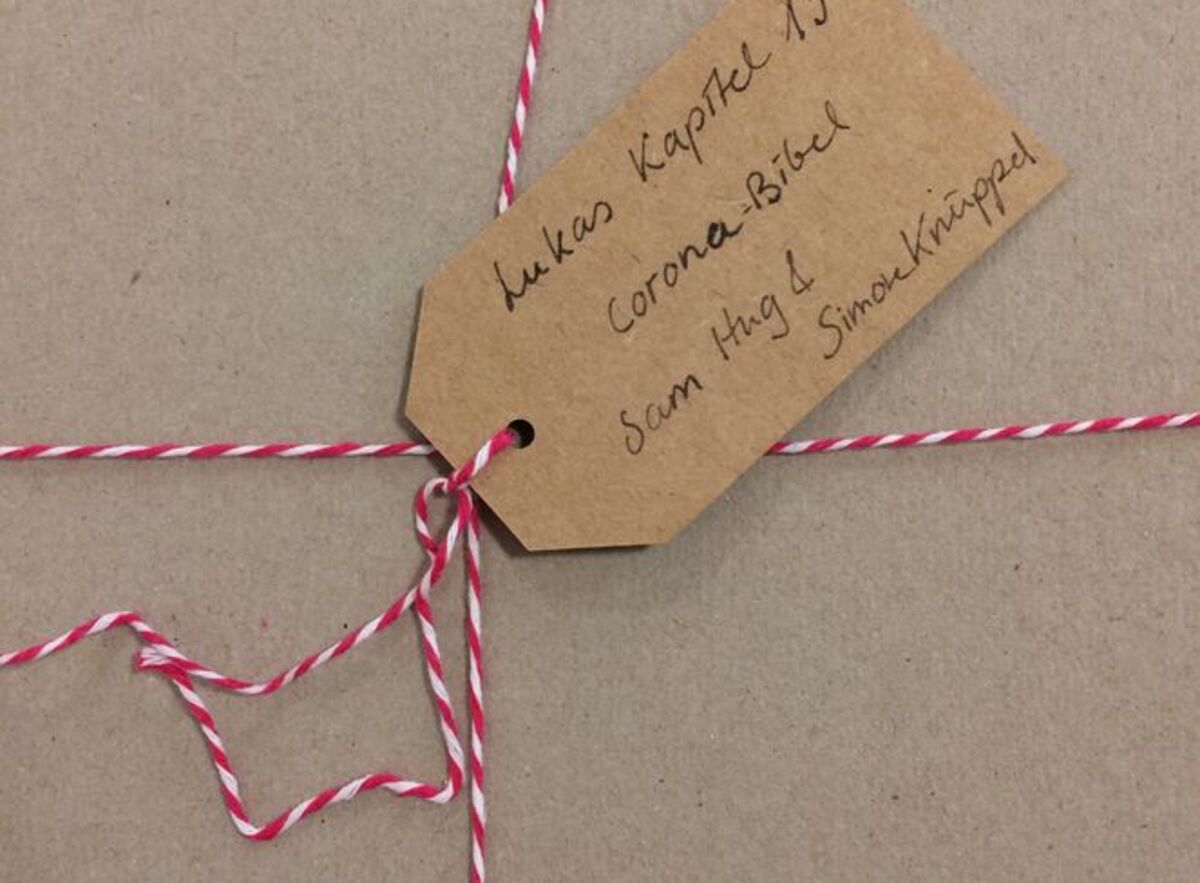 Lukas Kapitel 15
Corona-Bibel
Sam Hug &
Simone Knüppel